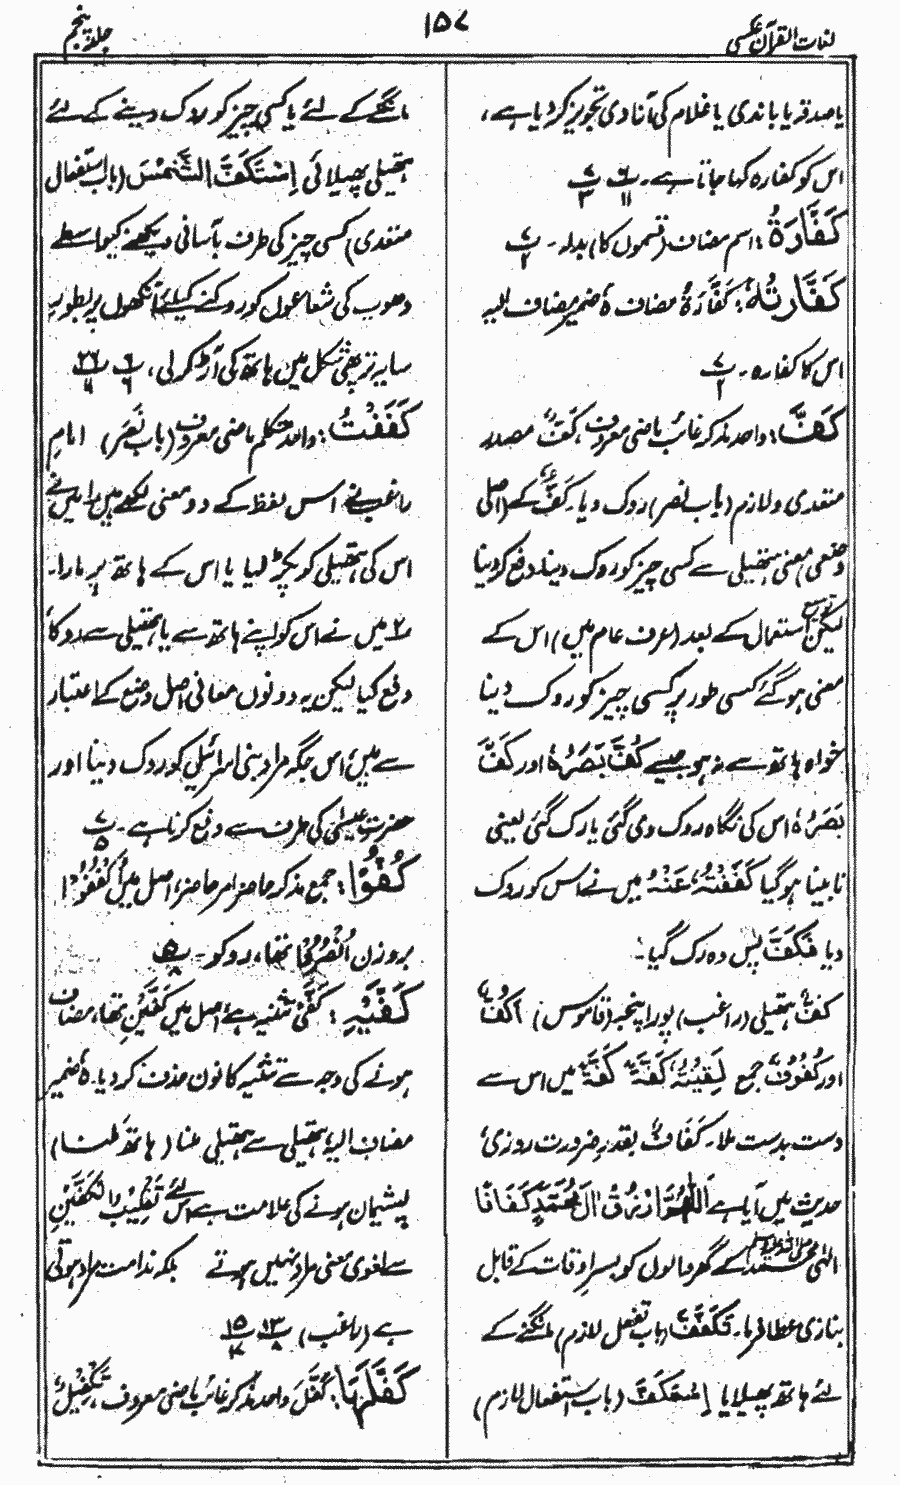 لغات القرآن عکسی
۱۵۷
جلد پنجم
یا صدقہ یا باندی یا غلام کی آزادی تجویز کر دیا ہے،
اس کو کفارہ کہا جاتا ہے۔
كَفَّارَةُ : اسم مضاف (قسموں کا) بدلہ۔
كَفَّارَتُهٗ : كَفَّارَةُ مضاف ہٗ ضمیر مضاف الیہ
اس کا کفارہ۔
كَفَّ : واحد مذکر غائب ماضی معروف كَفٌّ مصدر
متعدی ولازم (باب نصر) روک دیا۔ كَفٌّ کے (اصل
وضعی) معنی ہتھیلی سے کسی چیز کو روک دینا۔ دفع کر دینا
لیکن توسیع استعمال کے بعد (عرف عام میں) اس کے
معنی ہو گئے کسی طور پر کسی چیز کو روک دینا
خواہ ہاتھ سے نہ ہو جیسے كُفَّ بَصَرُهٗ اور كَفَّ
بَصَرُهٗ اس کی نگاہ روک دی گئی یا رک گئی یعنی
نابینا ہو گیا كَفَفْتُهٗ عَنْهُ میں نے اس کو روک
دیا فَكَفَّ پس وہ رک گیا۔
كَفٌّ ہتھیلی (راغب) پورا پنجہ (قاموس) اَكُفٌّ
اور كُفُوْفٌ جمع لَقِيْتُهٗ كَفَّةً كَفَّةً میں اس سے
دست بدست ملا۔ كَفَافٌ بقدر ضرورت روزی
حدیث میں آیا ہے اَللّٰهُمَّ ارْزُقْ اٰلَ مُحَمَّدٍ كَفَافًا
الٰہی محمد صلی اللہ علیہ وسلم کے گھر والوں کو بسر اوقات کے قابل
بنا روزی عطا فرما۔ تَكَفَّفَ (باب تفعل لازم) مانگنے کے
لئے ہاتھ پھیلایا اِسْتَكَفَّ (باب استفعال لازم)
مانگنے کے لئے یا کسی چیز کو روک دینے کے لئے
ہتھیلی پھیلائی اِسْتَكَفَّ الشَّمْسَ (باب استفعال
متعدی) کسی چیز کی طرف بآسانی دیکھنے کیواسطے
دھوپ کی شعاعوں کو روکنے کیلئے آنکھوں پر بطور
سایہ نزدیکی شکل میں ہاتھ کی آڑ کر لی،
كَفَفْتُ : واحد متکلم ماضی معروف (باب نَصَرَ) امام
راغب نے اس لفظ کے دو معنی لکھے ہیں ۱ میں نے
اس کی ہتھیلی کو پکڑ لیا یا اس کے ہاتھ پر مارا۔
۲ میں نے اس کو اپنے ہاتھ سے یا ہتھیلی سے روکا
دفع کیا لیکن یہ دونوں معانی اصل وضع کے اعتبار
سے ہیں، اس جگہ مراد بنی اسرائیل کو روک دینا اور
حضرت عیسٰی کی طرف سے دفع کرنا ہے۔
كُفُّوْا : جمع مذکر حاضر امر حاضر، اصل میں اُكْفُفُوْا
بروزن اُنْصُرُوْا تھا، روکو۔
كَفَّيْهِ : كَفَّيْ تثنیہ ہے، اصل میں كَفَّيْنِ تھا، مضاف
ہونے کی وجہ سے تثنیہ کا نون حذف کر دیا۔ ہٗ ضمیر
مضاف الیہ، ہتھیلی سے ہتھیلی ملنا (ہاتھ ملنا)
پشیمان ہونے کی علامت ہے اس لئے تَقْلِيْبُ الْكَفَّيْنِ
سے لغوی معنی مراد نہیں ہوتے بلکہ ندامت مراد ہوتی
ہے (راغب)
كَفَّلَهَا : كَفَّلَ واحد مذکر غائب ماضی معروف، تَكْفِيْلٌ